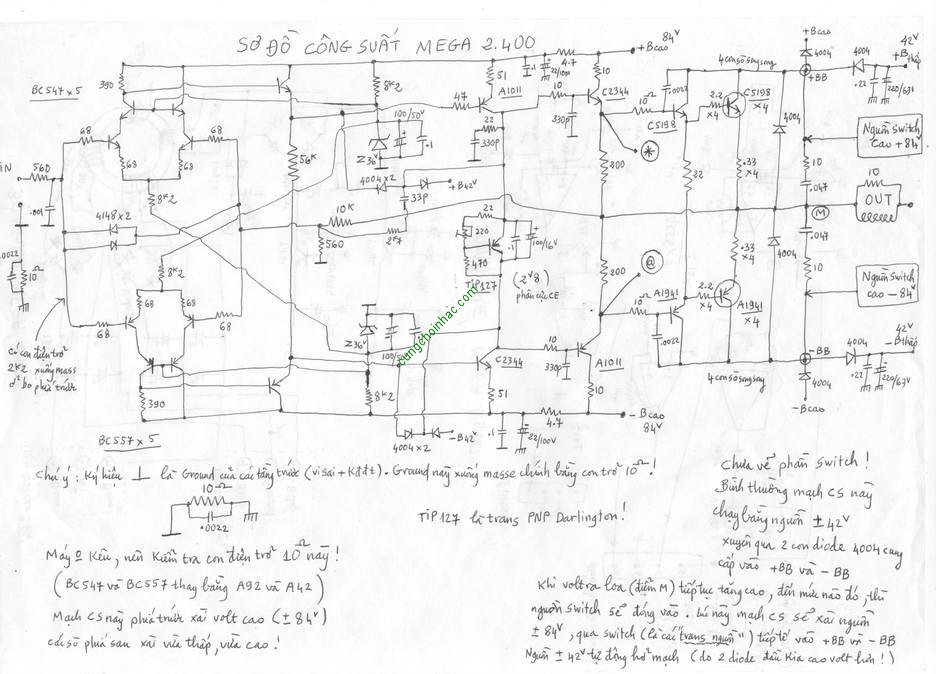 SƠ ĐỒ CÔNG SUẤT MEGA 2.400
+Bcao 84V
BC547 x 5
390
8K2
51
.1
22/100V
4.7
10
C2344
4 con sò song song
+Bcao
4004
+BB
4004
42V
+B thấp
.22
220/63V
100/50V
.1
47
A1011
10
330p
10Ω
.0022
C5198
2.2 x4
C5198 x4
4004
Nguồn switch cao +84V
68
68
68
68
56K
Z36V
22
330p
200
*
22
.33 x4
10
.047
10
OUT
IN
560
.001
8K2
4004 x 2
33P
+B42V
M
4148 x 2
10K
560
2K7
22
220
470
.1
100/16V
TIP127
(2V8) phân cực CE
200
@
.33 x4
4004
.047
10
Nguồn switch cao -84V
.0022
10Ω
8K2
cungchoinhac.com
68
68
68
68
Z36V
100
10Ω
A1941
2.2 x4
A1941 x4
.0022
có con điện trở 2K2 xuống mass ở bo phía trước
C2344
10
330p
A1011
4 con sò song song
-BB
4004
4004
42V
-B thấp
.22
220/63V
-Bcao
390
8K2
51
10
BC557 x 5
4004 x 2
-B42V
.1
22/100V
4.7
-Bcao 84V
Chú ý : Ký hiệu ⊥ là Ground của các tầng trước (visai + Kđđt). Ground này xuống masse chính bằng con trở 10Ω !
10Ω
.0022
TIP127 là trans PNP Darlington !
Máy ở Kêu, nên Kiểm tra con điện trở 10Ω này !
(BC547 và BC557 thay bằng A92 và A42)
Mạch CS này phía trước xài volt cao (± 84V)
các sò phía sau xài vừa thấp, vừa cao !
Chưa vẽ phần switch !
Bình thường mạch CS này
chạy bằng nguồn ± 42V
xuyên qua 2 con diode 4004 cung
cấp vào +BB và -BB
Khi volt ra loa (điểm M) tiếp tục tăng cao, đến mức nào đó, thì
nguồn switch sẽ đóng vào. Lúc này mạch CS sẽ xài nguồn
± 84V, qua switch (là các "trans nguồn") tiếp tế vào +BB và -BB
Nguồn ± 42V tự động hở mạch (do 2 diode đầu kia cao volt hơn !)